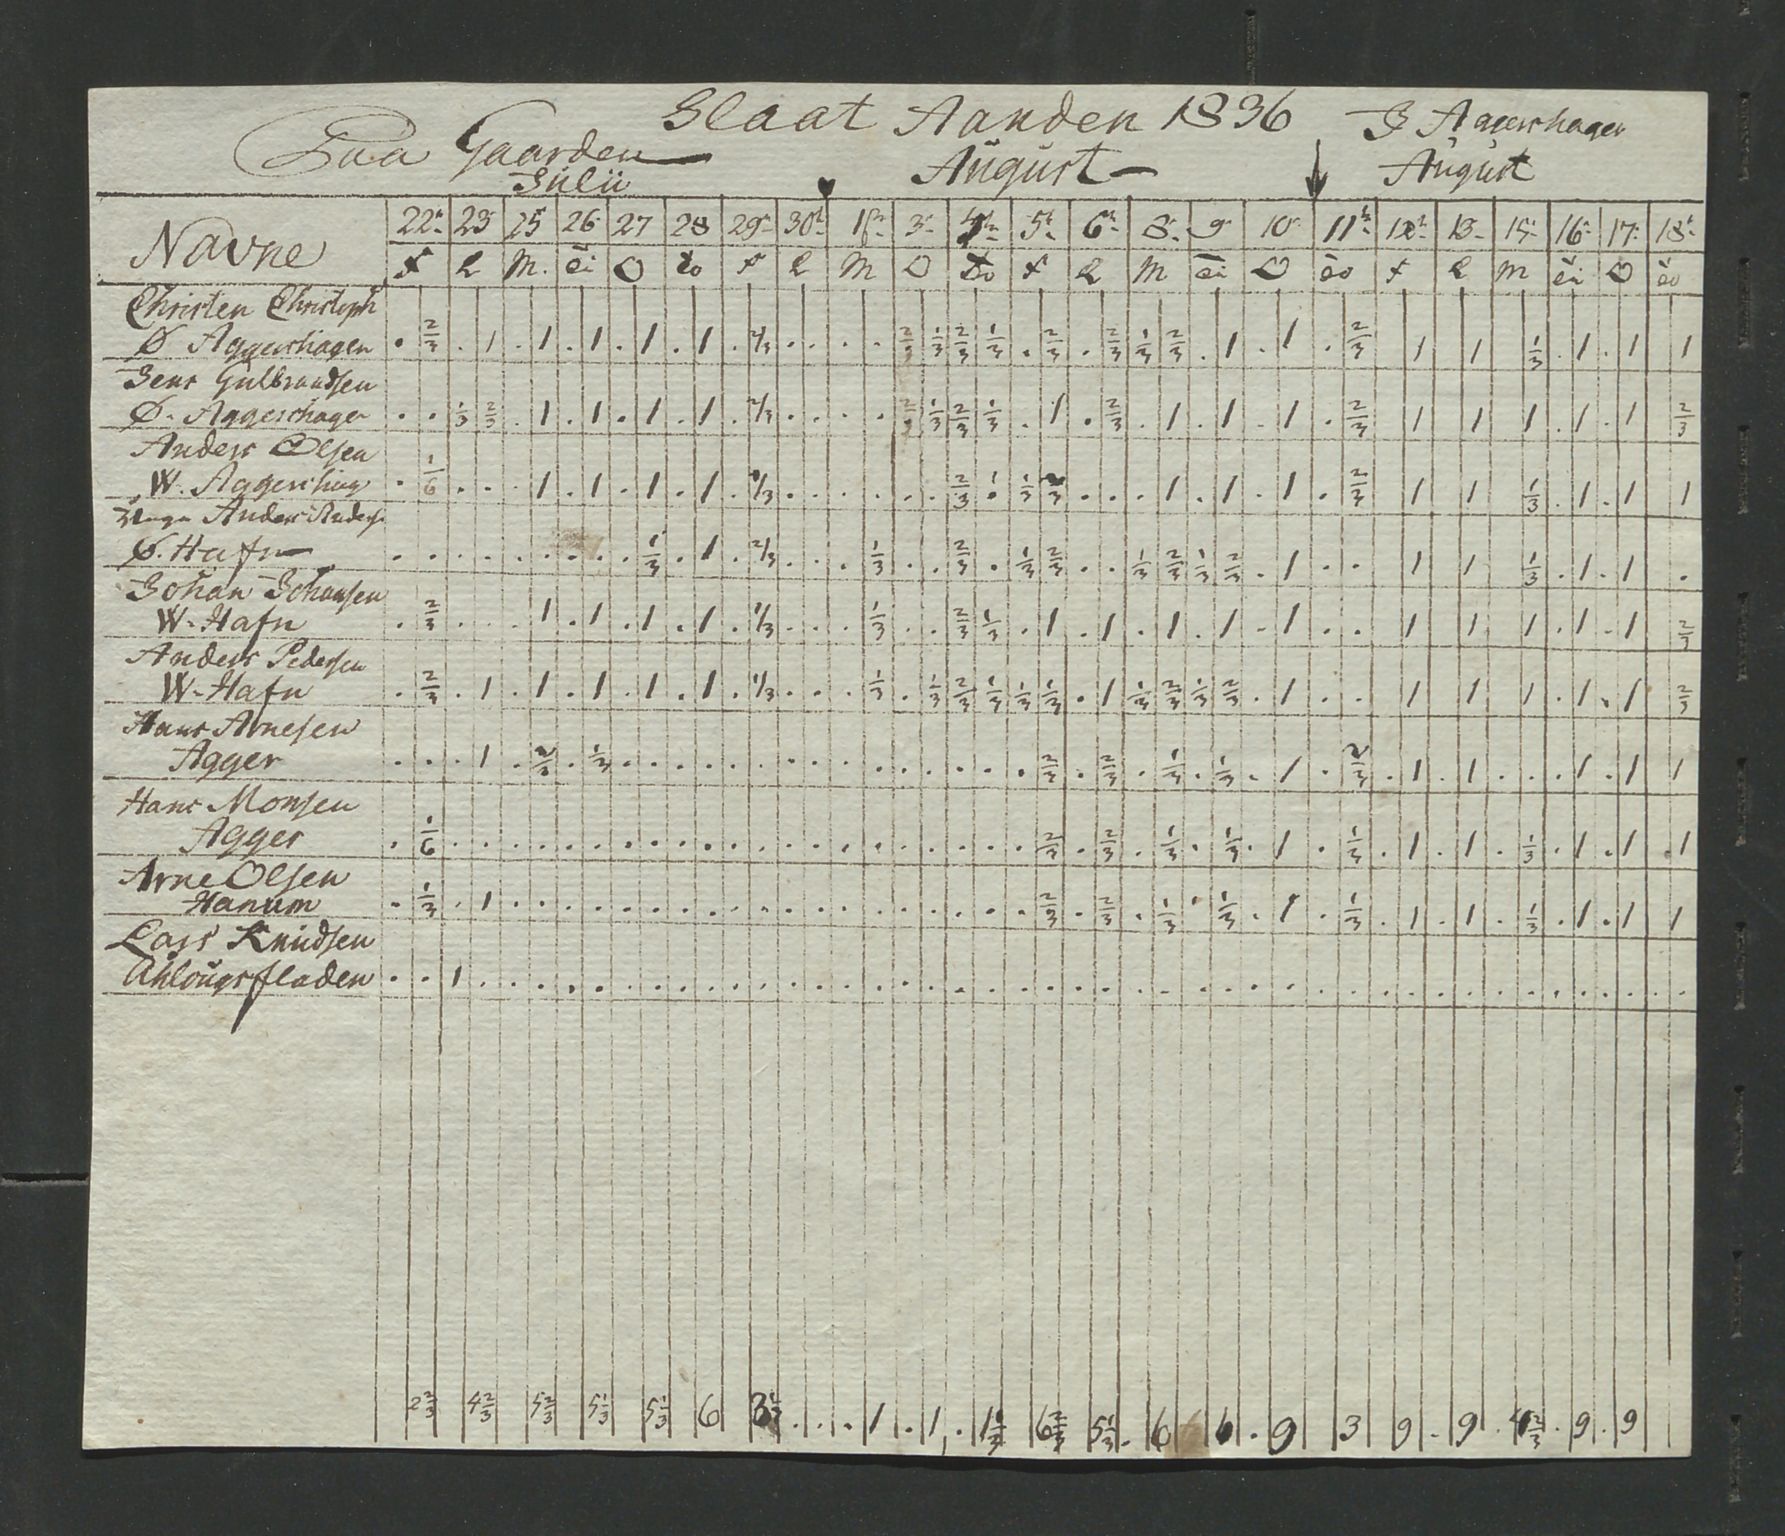 Slaat Aanden 1836 I Agershagen
Paa Gaarden August August
Julii
Navne 22de 23 25 26 27 28 29 30te 1ste 3 4de 5te 6te 8 9 10 11te 12te 13 15 16 17 18te
F L M. Ti O To F L M O To F L M Ti O To F L M Ti O To
Christen Christoph
Ø Aggershagen . 2/3 . 1 . 1 . 1 . 1 . 1 . 2/3 . . . . 2/3 1/3 2/3 1/3 . 2/3 . 2/3 1/3 2/3 . 1 . 1 . 2/3 1 1 1/3 . 1 . 1 1
Jens Gulbrandsen
Ø. Aggershagen . . 1/3 2/3 . 1 . 1 . 1 . 1 2/3 . . . . 2/3 1/3 2/3 1/3 . 1 . 2/3 . 1 . 1 . 1 . 2/3 1 1 1 . 1 . 1 2/3
Anders Olsen
W. Agershag . 1/6 . . . 1 . 1 . 1 . 1 . 1/3 . . . . . . 2/3 . 1/3 2/3 . . . 1 . 1 . 1 . 2/3 1 1 1/3 . 1 . 1 1
Anders
Ø. Hafn . . . . . . . . . 1/3 . 1 . 2/3 . . . 1/3 . . 2/3 . 1/3 2/3 . . 1/3 2/3 1/3 2/3 . 1 . . 1 1 1/3 . 1 . 1 .
Johan Johansen
W. Hafn . 2/3 . . . 1 . 1 . 1 . 1 . 1/3 . . . 1/3 . . 2/3 1/3 . 1 . 1 . 1 . 1 . 1 . . 1 1 1 . 1 . 1 2/3
Anders Pedersen
W. Hafn . 2/3 . 1 . 1 . 1 . 1 . 1 . 1/3 . . . 1/3 . 1/3 2/3 1/3 1/3 1/3 . 1 1/3 2/3 1/3 2/3 . 1 . . 1 1 1 . 1 . 1 2/3
Hans Arnesen
Agger . . . 1 . 2/3 . 1/3 . . . . . . . . . . . . . . . 2/3 . 2/3 . 1/3 . 1/3 . 1 . 2/3 . 1 . 1 . . . 1 . 1 1
Hans Monsen
Agger . 1/6 . . . . . . . . . . . . . . . . . . . . . 2/3 . 2/3 . 1/3 . 1/3 . 1 . 1/3 . 1 . 1 . 1/3 . 1 . 1 . 1
Arne Olsen
Hanum . 1/3 . 1 . . . . . . . . . . . . . . . . . . . 2/3 . 2/3 . 1/3 . 1/3 . 1 . 1/3 . 1 . 1 . 1/3 . 1 . 1 1
Lars Knudsen
Ahlougsfladen . . 1 . . . . . . . . . . . . . . . . . . . . . . . . . . . . . . . . . . . . . . . . .
2 2/3 4 2/3 5 2/3 5 1/3 5 1/3 6 3 1/3 . . . 1 . 1 . 1 1/3 6 2/3 5 1/3 . 6 6 . 9 3 9 . 9 . 4 2/3 . 9 . 9